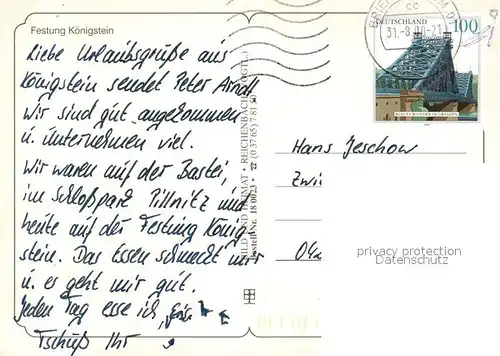 Festung Königstein
Liebe Urlaubsgrüße aus
Königstein sendet Peter Arndt
Wir sind gut angekommen
u. unternehmen viel.
Wir waren auf der Bastei,
im Schloßpark Pillnitz und
heute auf der Festung König
stein. Das Essen schmeckt mir
u. es geht mir gut.
Jeden Tag esse ich
Tschüß Ihr
BILD UND HEIMAT • REICHENBACH (VOGTL.)
Bestell-Nr. 18 0023
DEUTSCHLAND
100
BLAUES WUNDER IN DRESDEN
BRIEF
CC
31.-8.00-21
Hans Jeschow
Zwi
04
privacy protection
Datenschutz